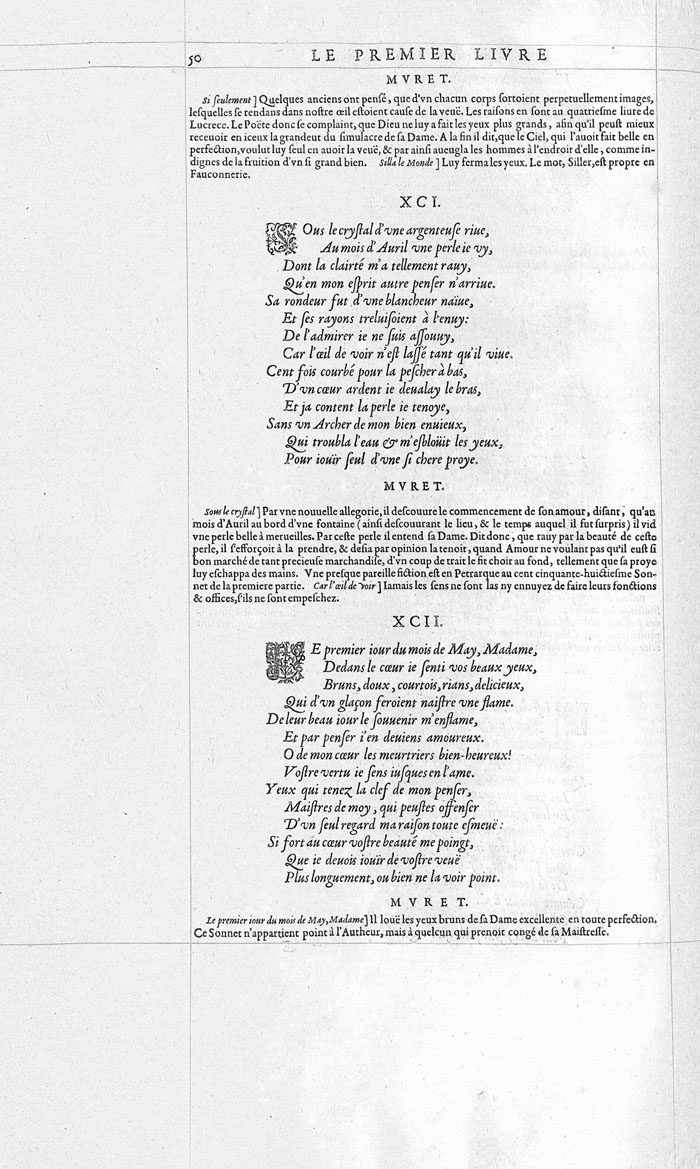 50
LE PREMIER LIVRE
MVRET.
Si ſeulement ] Quelques anciens ont penſé, que d'vn chacun corps ſortoient perpetuellement images,
leſquelles ſe rendans dans noſtre œil eſtoient cauſe de la veuë. Les raiſons en ſont au quatrieſme liure de
Lucrece. Le Poëte donc ſe complaint, que Dieu ne luy a fait les yeux plus grands, afin qu'il peuſt mieux
receuoir en iceux la grandeur du ſimulacre de ſa Dame. A la fin il dit, que le Ciel, qui l'auoit fait belle en
perfection, voulut luy ſeul en auoir la veuë, & par ainſi aueugla les hommes à l'endroit d'elle, comme in-
dignes de la fruition d'vn ſi grand bien. Silla le Monde ] Luy ferma les yeux. Le mot, Siller, eſt propre en
Fauconnerie.
XCI.
SOus le cryſtal d'vne argenteuſe riue,
Au mois d'Auril vne perle ie vy,
Dont la clairté m'a tellement rauy,
Qu'en mon eſprit autre penſer n'arriue.
Sa rondeur fut d'vne blancheur naïue,
Et ſes rayons treluiſoient à l'enuy:
De l'admirer ie ne ſuis aſſouuy,
Car l'œil de voir n'eſt laſſé tant qu'il viue.
Cent fois courbé pour la peſcher à bas,
D'vn cœur ardent ie deualay le bras,
Et ja content la perle ie tenoye,
Sans vn Archer de mon bien enuieux,
Qui troubla l'eau & m'eſbloüit les yeux,
Pour iouïr ſeul d'vne ſi chere proye.
MVRET.
Sous le cryſtal ] Par vne nouuelle allegorie, il deſcouure le commencement de ſon amour, diſant, qu'au
mois d'Auril au bord d'vne fontaine ( ainſi deſcouurant le lieu, & le temps auquel il fut ſurpris ) il vid
vne perle belle à merueilles. Par ceſte perle il entend ſa Dame. Dit donc, que rauy par la beauté de ceſte
perle, il ſ'efforçoit à la prendre, & deſia par opinion la tenoit, quand Amour ne voulant pas qu'il euſt ſi
bon marché de tant precieuſe marchandiſe, d'vn coup de trait le fit choir au fond, tellement que ſa proye
luy eſchappa des mains. Vne preſque pareille fiction eſt en Petrarque au cent cinquante-huictieſme Son-
net de la premiere partie. Car l'œil de voir ] Iamais les ſens ne ſont las ny ennuyez de faire leurs fonctions
& offices, ſ'ils ne ſont empeſchez.
XCII.
LE premier iour du mois de May, Madame,
Dedans le cœur ie ſenti vos beaux yeux,
Bruns, doux, courtois, rians, delicieux,
Qui d'vn glaçon feroient naiſtre vne flame.
De leur beau iour le ſouuenir m'enflame,
Et par penſer i'en deuiens amoureux.
O de mon cœur les meurtriers bien-heureux!
Voſtre vertu ie ſens iuſques en l'ame.
Yeux qui tenez la clef de mon penſer,
Maiſtres de moy, qui peuſtes offenſer
D'vn ſeul regard ma raiſon toute eſmeuë:
Si fort au cœur voſtre beauté me poingt,
Que ie deuois iouïr de voſtre veuë
Plus longuement, ou bien ne la voir point.
MVRET.
Le premier iour du mois de May, Madame] Il louë les yeux bruns de ſa Dame excellente en toute perfection.
Ce Sonnet n'appartient point à l'Autheur, mais à quelcun qui prenoit congé de ſa Maiſtreſſe.